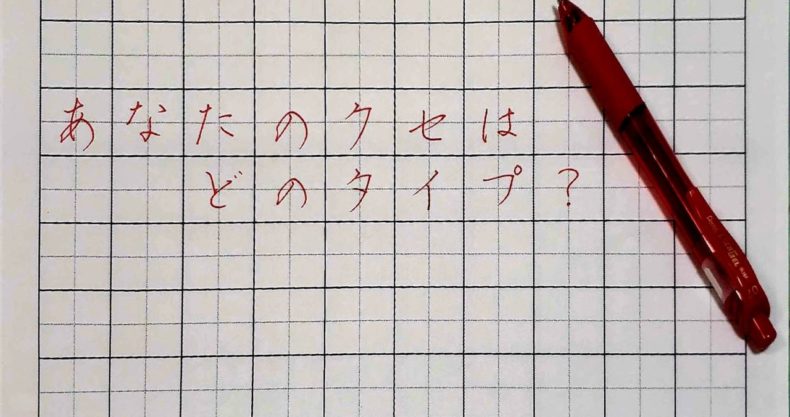 あなたのクセは
どのタイプ?